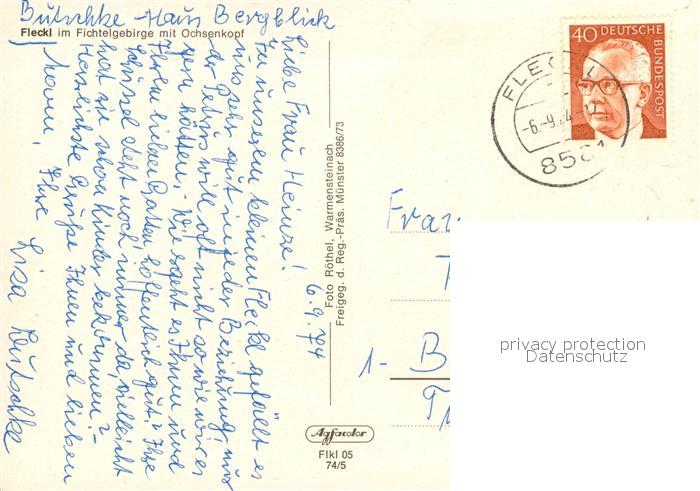 Butschke - Haus Bergblick
Fleckl im Fichtelgebirge mit Ochsenkopf
6.9.74
Liebe Frau Heinze!
In unserem kleinen Fleckl gefällt es
uns sehr gut in jeder Beziehung, nur
der Petrus will oft nicht so wie wir es
gern hätten. - Wie geht es Ihnen und
Ihrem lieben Gatten hoffentlich gut? Ihre
steht noch immer da, vielleicht
hat sie schon Kinder bekommen? -
Herzlichste Grüße Ihnen und lieben
Mann, Ihre Lisa Butschke
Foto Röthel, Warmensteinach
Freigeg. d. Reg.-Präs. Münster 8386/73
Agfacolor
Flkl 05
74/5
40 DEUTSCHE
BUNDESPOST
FLECKL
-6.-9.74
8581
Frau
1- B
privacy protection
Datenschutz